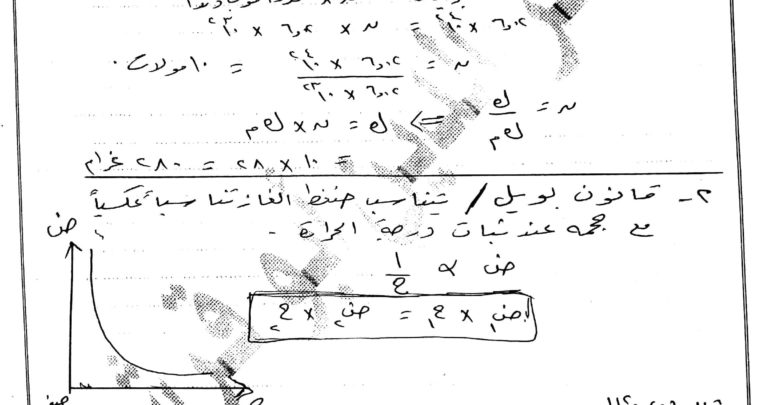 ٦,٠٢ × ١٠^٢٤ = ن × ٦,٠٢ × ١٠^٢٣
ن = ٦,٠٢ × ١٠^٢٤ / ٦,٠٢ × ١٠^٢٣ = ١٠ مولات
ن = ك / ك م ⇐ ك = ن × ك م
= ١٠ × ٢٨ = ٢٨٠ غرام
٢- قانون بويل / يتناسب ضغط الغاز تناسباً عكسياً
مع حجمه عند ثبات درجة الحرارة .
ض
ض ∝ ١ / ح
ض١ × ح١ = ض٢ × ح٢
ح
صفر